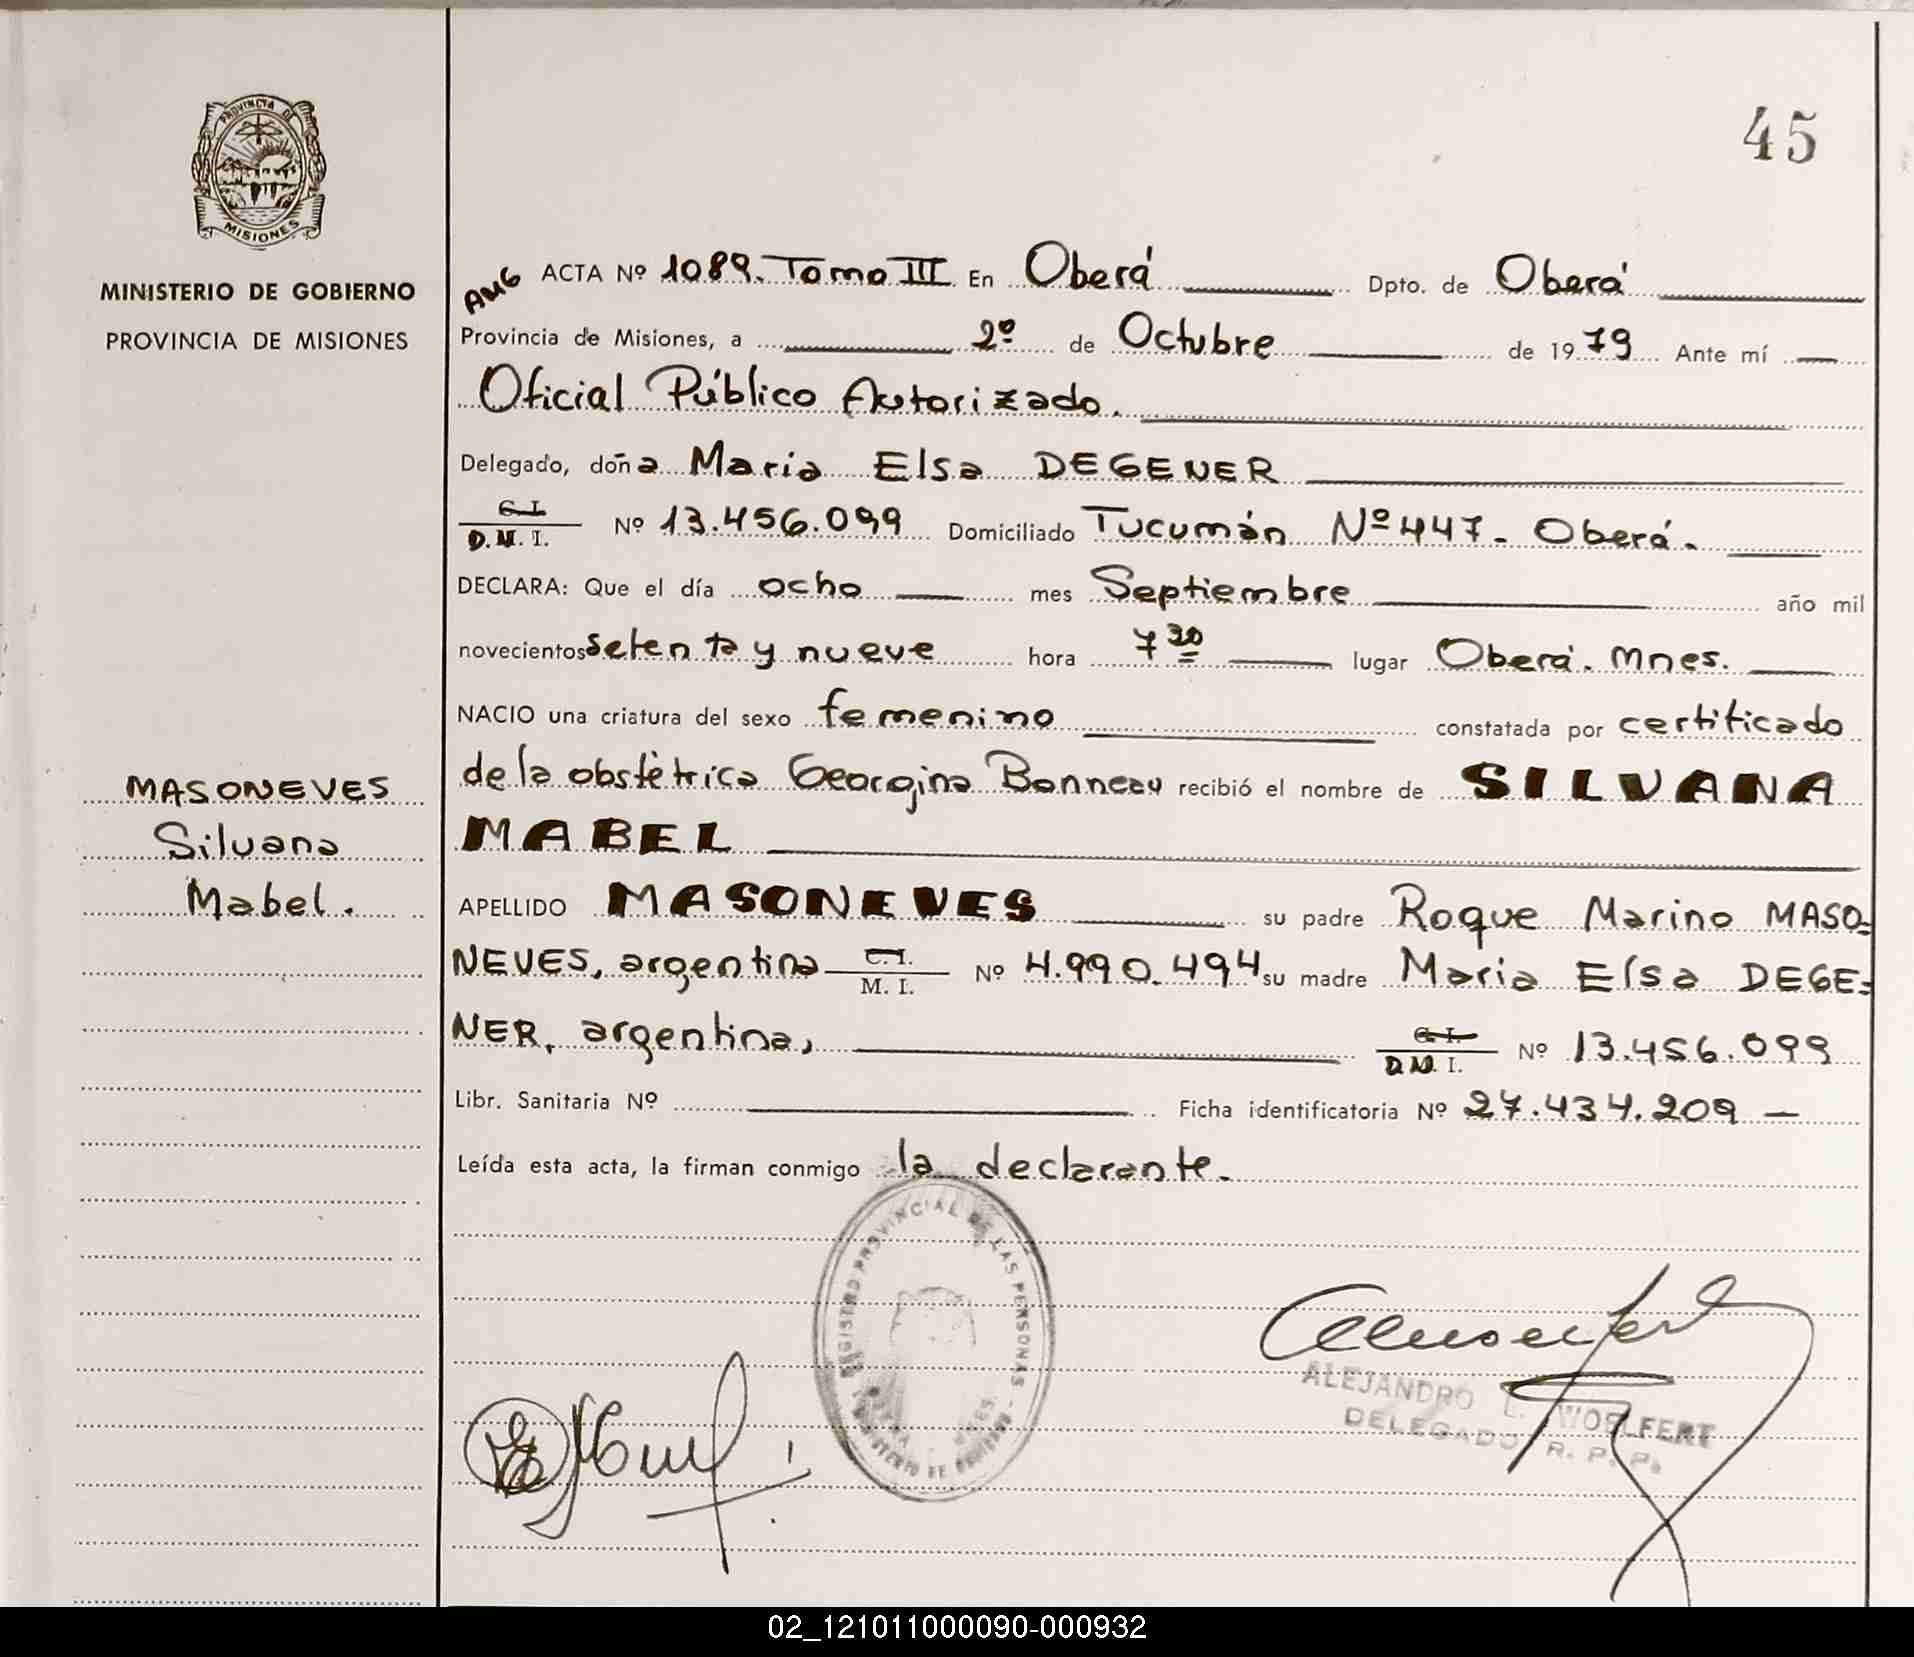 45
PROVINCIA DE
MISIONES
MINISTERIO DE GOBIERNO
PROVINCIA DE MISIONES
MASONEVES
Silvana
Mabel.
ACTA Nº 1089. Tomo III En Oberá Dpto. de Oberá
Provincia de Misiones, a 2º de Octubre de 1979 Ante mí
Oficial Público Autorizado.
Delegado, doña Maria Elsa DEGENER
C.I.
D.N.I. Nº 13.456.099 Domiciliado Tucumán Nº 447- Oberá.
DECLARA: Que el día ocho mes Septiembre año mil
novecientos setenta y nueve hora 7 30 lugar Oberá. Mnes.
NACIO una criatura del sexo femenino constatada por certificado
de la obstètrica Georgina Bonneau recibió el nombre de SILVANA
MABEL
APELLIDO MASONEVES su padre Roque Marino MASO=
NEVES, argentina C.I. M. I. Nº 4.990.494 su madre Maria Elsa DEGE=
NER, argentina, C.I. D.N.I. Nº 13.456.099
Libr. Sanitaria Nº Ficha identificatoria Nº 27.434.209 —
Leída esta acta, la firman conmigo la declarante.
REGISTRO PROVINCIAL DE LAS PERSONAS -
ALEJANDRO L. WOELFERT
DELEGADO R. P. P.
02_121011000090-000932